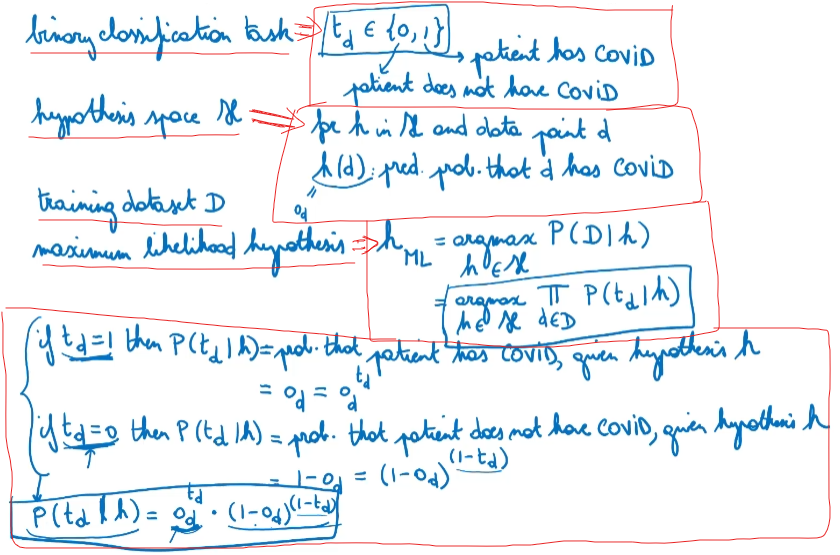 binary classification task ⇒ t_d ∈ {0,1}
patient has COVID
patient does not have COVID
hypothesis space ℋ ⇒ for h in ℋ and data point d
h(d): pred. prob. that d has COVID
"
o_d
training dataset D
maximum likelihood hypothesis ⇒ h_ML = argmax P(D|h)
h∈ℋ
= argmax ∏ P(t_d|h)
h∈ℋ d∈D
if t_d=1 then P(t_d|h) = prob. that patient has COVID, given hypothesis h
= o_d = o_d^{t_d}
if t_d=0 then P(t_d|h) = prob. that patient does not have COVID, given hypothesis h
= 1-o_d = (1-o_d)^{(1-t_d)}
P(t_d|h) = o_d^{t_d} · (1-o_d)^{(1-t_d)}